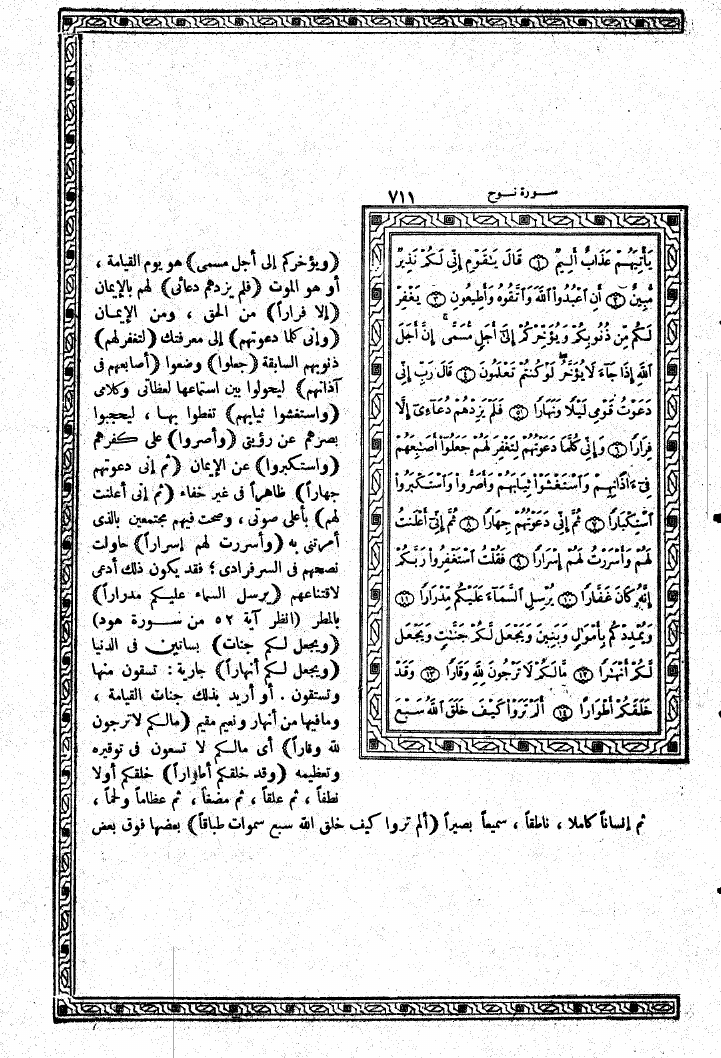 سورة نوح ٧١١
يَأْتِيَهُمْ عَذَابٌ أَلِيمٌ ۝١ قَالَ يَٰقَوْمِ إِنِّى لَكُمْ نَذِيرٌ
مُّبِينٌ ۝٢ أَنِ ٱعْبُدُوا۟ ٱللَّهَ وَٱتَّقُوهُ وَأَطِيعُونِ ۝٣ يَغْفِرْ
لَكُم مِّن ذُنُوبِكُمْ وَيُؤَخِّرْكُمْ إِلَىٰٓ أَجَلٍ مُّسَمًّى ۚ إِنَّ أَجَلَ
ٱللَّهِ إِذَا جَآءَ لَا يُؤَخَّرُ ۖ لَوْ كُنتُمْ تَعْلَمُونَ ۝٤ قَالَ رَبِّ إِنِّى
دَعَوْتُ قَوْمِى لَيْلًا وَنَهَارًا ۝٥ فَلَمْ يَزِدْهُمْ دُعَآءِىٓ إِلَّا
فِرَارًا ۝٦ وَإِنِّى كُلَّمَا دَعَوْتُهُمْ لِتَغْفِرَ لَهُمْ جَعَلُوٓا۟ أَصَٰبِعَهُمْ
فِىٓ ءَاذَانِهِمْ وَٱسْتَغْشَوْا۟ ثِيَابَهُمْ وَأَصَرُّوا۟ وَٱسْتَكْبَرُوا۟
ٱسْتِكْبَارًا ۝٧ ثُمَّ إِنِّى دَعَوْتُهُمْ جِهَارًا ۝٨ ثُمَّ إِنِّىٓ أَعْلَنتُ
لَهُمْ وَأَسْرَرْتُ لَهُمْ إِسْرَارًا ۝٩ فَقُلْتُ ٱسْتَغْفِرُوا۟ رَبَّكُمْ
إِنَّهُۥ كَانَ غَفَّارًا ۝١٠ يُرْسِلِ ٱلسَّمَآءَ عَلَيْكُم مِّدْرَارًا ۝١١
وَيُمْدِدْكُم بِأَمْوَٰلٍ وَبَنِينَ وَيَجْعَل لَّكُمْ جَنَّٰتٍ وَيَجْعَل
لَّكُمْ أَنْهَٰرًا ۝١٢ مَّا لَكُمْ لَا تَرْجُونَ لِلَّهِ وَقَارًا ۝١٣ وَقَدْ
خَلَقَكُمْ أَطْوَارًا ۝١٤ أَلَمْ تَرَوْا۟ كَيْفَ خَلَقَ ٱللَّهُ سَبْعَ
(ويؤخركم إلى أجل مسمى) هو يوم القيامة ،
أو هو الموت (فلم يزدهم دعائى) لهم بالإيمان
(إلا فراراً) من الحق ، ومن الإيمـان
(وإنى كلما دعوتهم) إلى معرفتك (لتغفر لهم)
ذنوبهم السابقة (جعلوا) وضعوا (أصابعهم فى
آذانهم) ليحولوا بين استماعها لعظاتى وكلامى
(واستغشوا ثيابهم) تغطوا بهـا ، ليحجبوا
بصرهم عن رؤيتى (وأصروا) على كفرهم
(واستكبروا) عن الإيمان (ثم إنى دعوتهم
جهاراً) ظاهراً فى غير خفاء (ثم إنى أعلنت
لهم) بأعلى صوتى ، وصحت فيهم مجتمعين بالذى
أمرتنى به (وأسررت لهم إسراراً) حاولت
نصحهم فى السر فرادى ؛ فقد يكون ذلك أدعى
لاقتناعهم (يرسل السماء عليـكم مدراراً)
بالمطر (انظر آية ٥٢ من سـورة هود)
(ويجعل لـكم جنات) بساتين فى الدنيا
(ويجعل لـكم أنهاراً) جارية : تسقون منها
وتستقون . أو أريد بذلك جنات القيامة ،
ومافيها من أنهار ونعيم مقيم (مالـكم لاترجون
لله وقاراً) أى مالـكم لا تسعون فى توقيره
وتعظيمه (وقد خلقكم أطواراً) خلقكم أولا
نطفاً ، ثم علقاً ، ثم مضغاً ، ثم عظاماً ولحماً ،
ثم إنساناً كاملا ، ناطقاً ، سميعاً بصيراً (ألم تروا كيف خلق الله سبع سموات طباقاً) بعضها فوق بعض